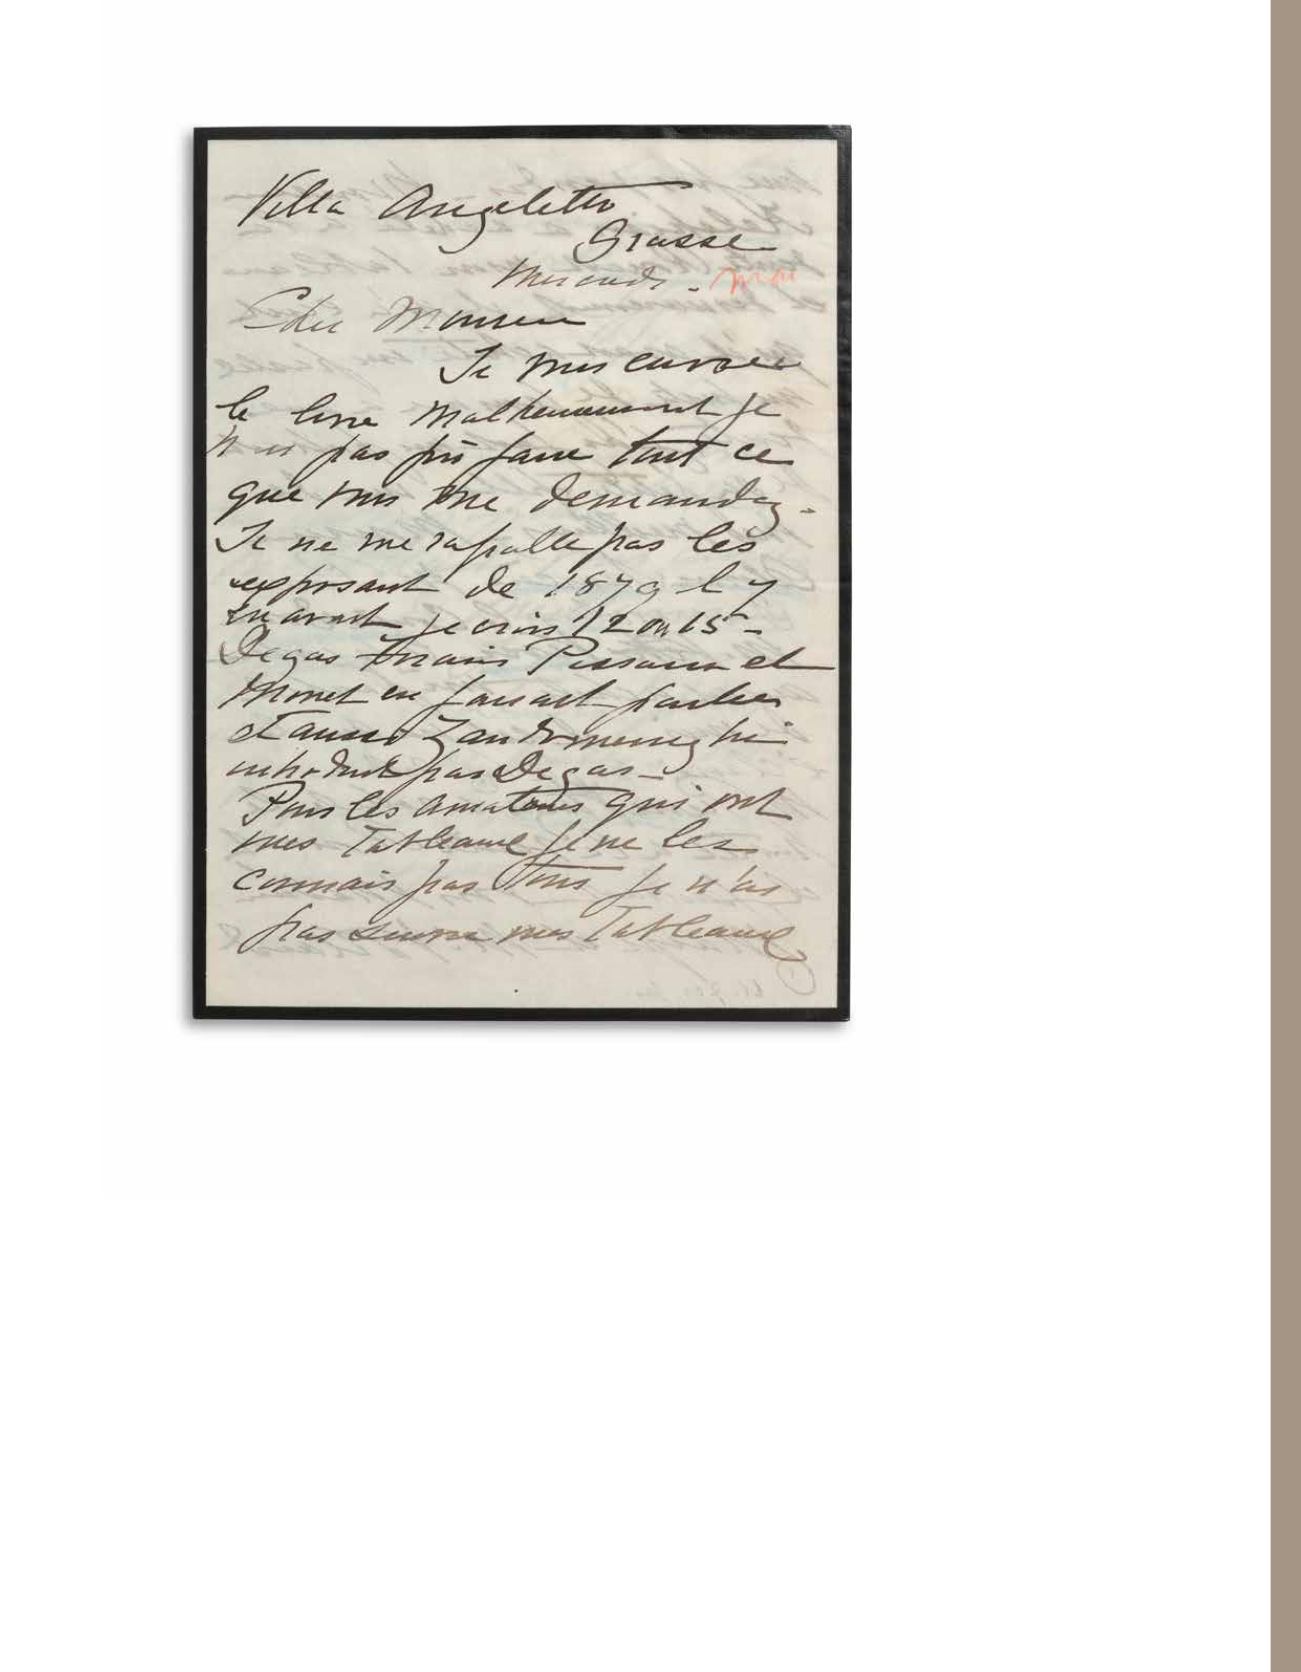 Villa Angeletto
Grasse
Mercredi - mai
Cher Monsieur
Je vous envoie
le livre malheureusement je
n'ai pas pu faire tout ce
que vous me demandez.
Je ne me rapelle pas les
exposant de 1879 il y
en avait je crois 12 ou 15 -
Degas Pissarro et
Monet en faisait parties
et aussi Zandomeneghi
introduit par Degas -
Pour les amateurs qui ont
mes Tableaux je ne les
connais pas tous je n'ai
pas suivre mes Tableaux